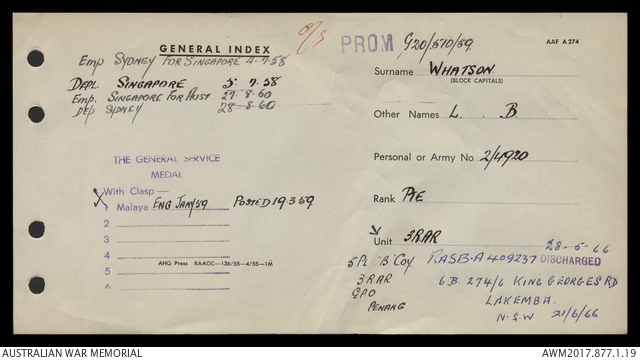 GENERAL INDEX
Emp SYDNEY FOR SINGAPORE 4.7.58
DEPL. SINGAPORE 5.7.58
Emp. SINGAPORE FOR AUST 27.8.60
DEP SYDNEY 28-8-60
THE GENERAL SERVICE
MEDAL
With Clasp —
X 1 Malaya ENG JAN/59 POSTED 19.3.59
2
3
4
5
6
AHQ Press RAAOC—136/55—4/55—1M
PROM G20/570/59
AAF A274
Surname WHATSON
(BLOCK CAPITALS)
Other Names L. B.
Personal or Army No 2/4920
Rank PTE
Unit 3RAR
5 PL 'B' Coy
3RAR
GPO
PENANG
28-5-66
RASB-A 409237 DISCHARGED
6B. 274/6 KING GEORGES RD
LAKEMBA.
N.S.W 21/6/66
AUSTRALIAN WAR MEMORIAL
AWM2017.877.1.19